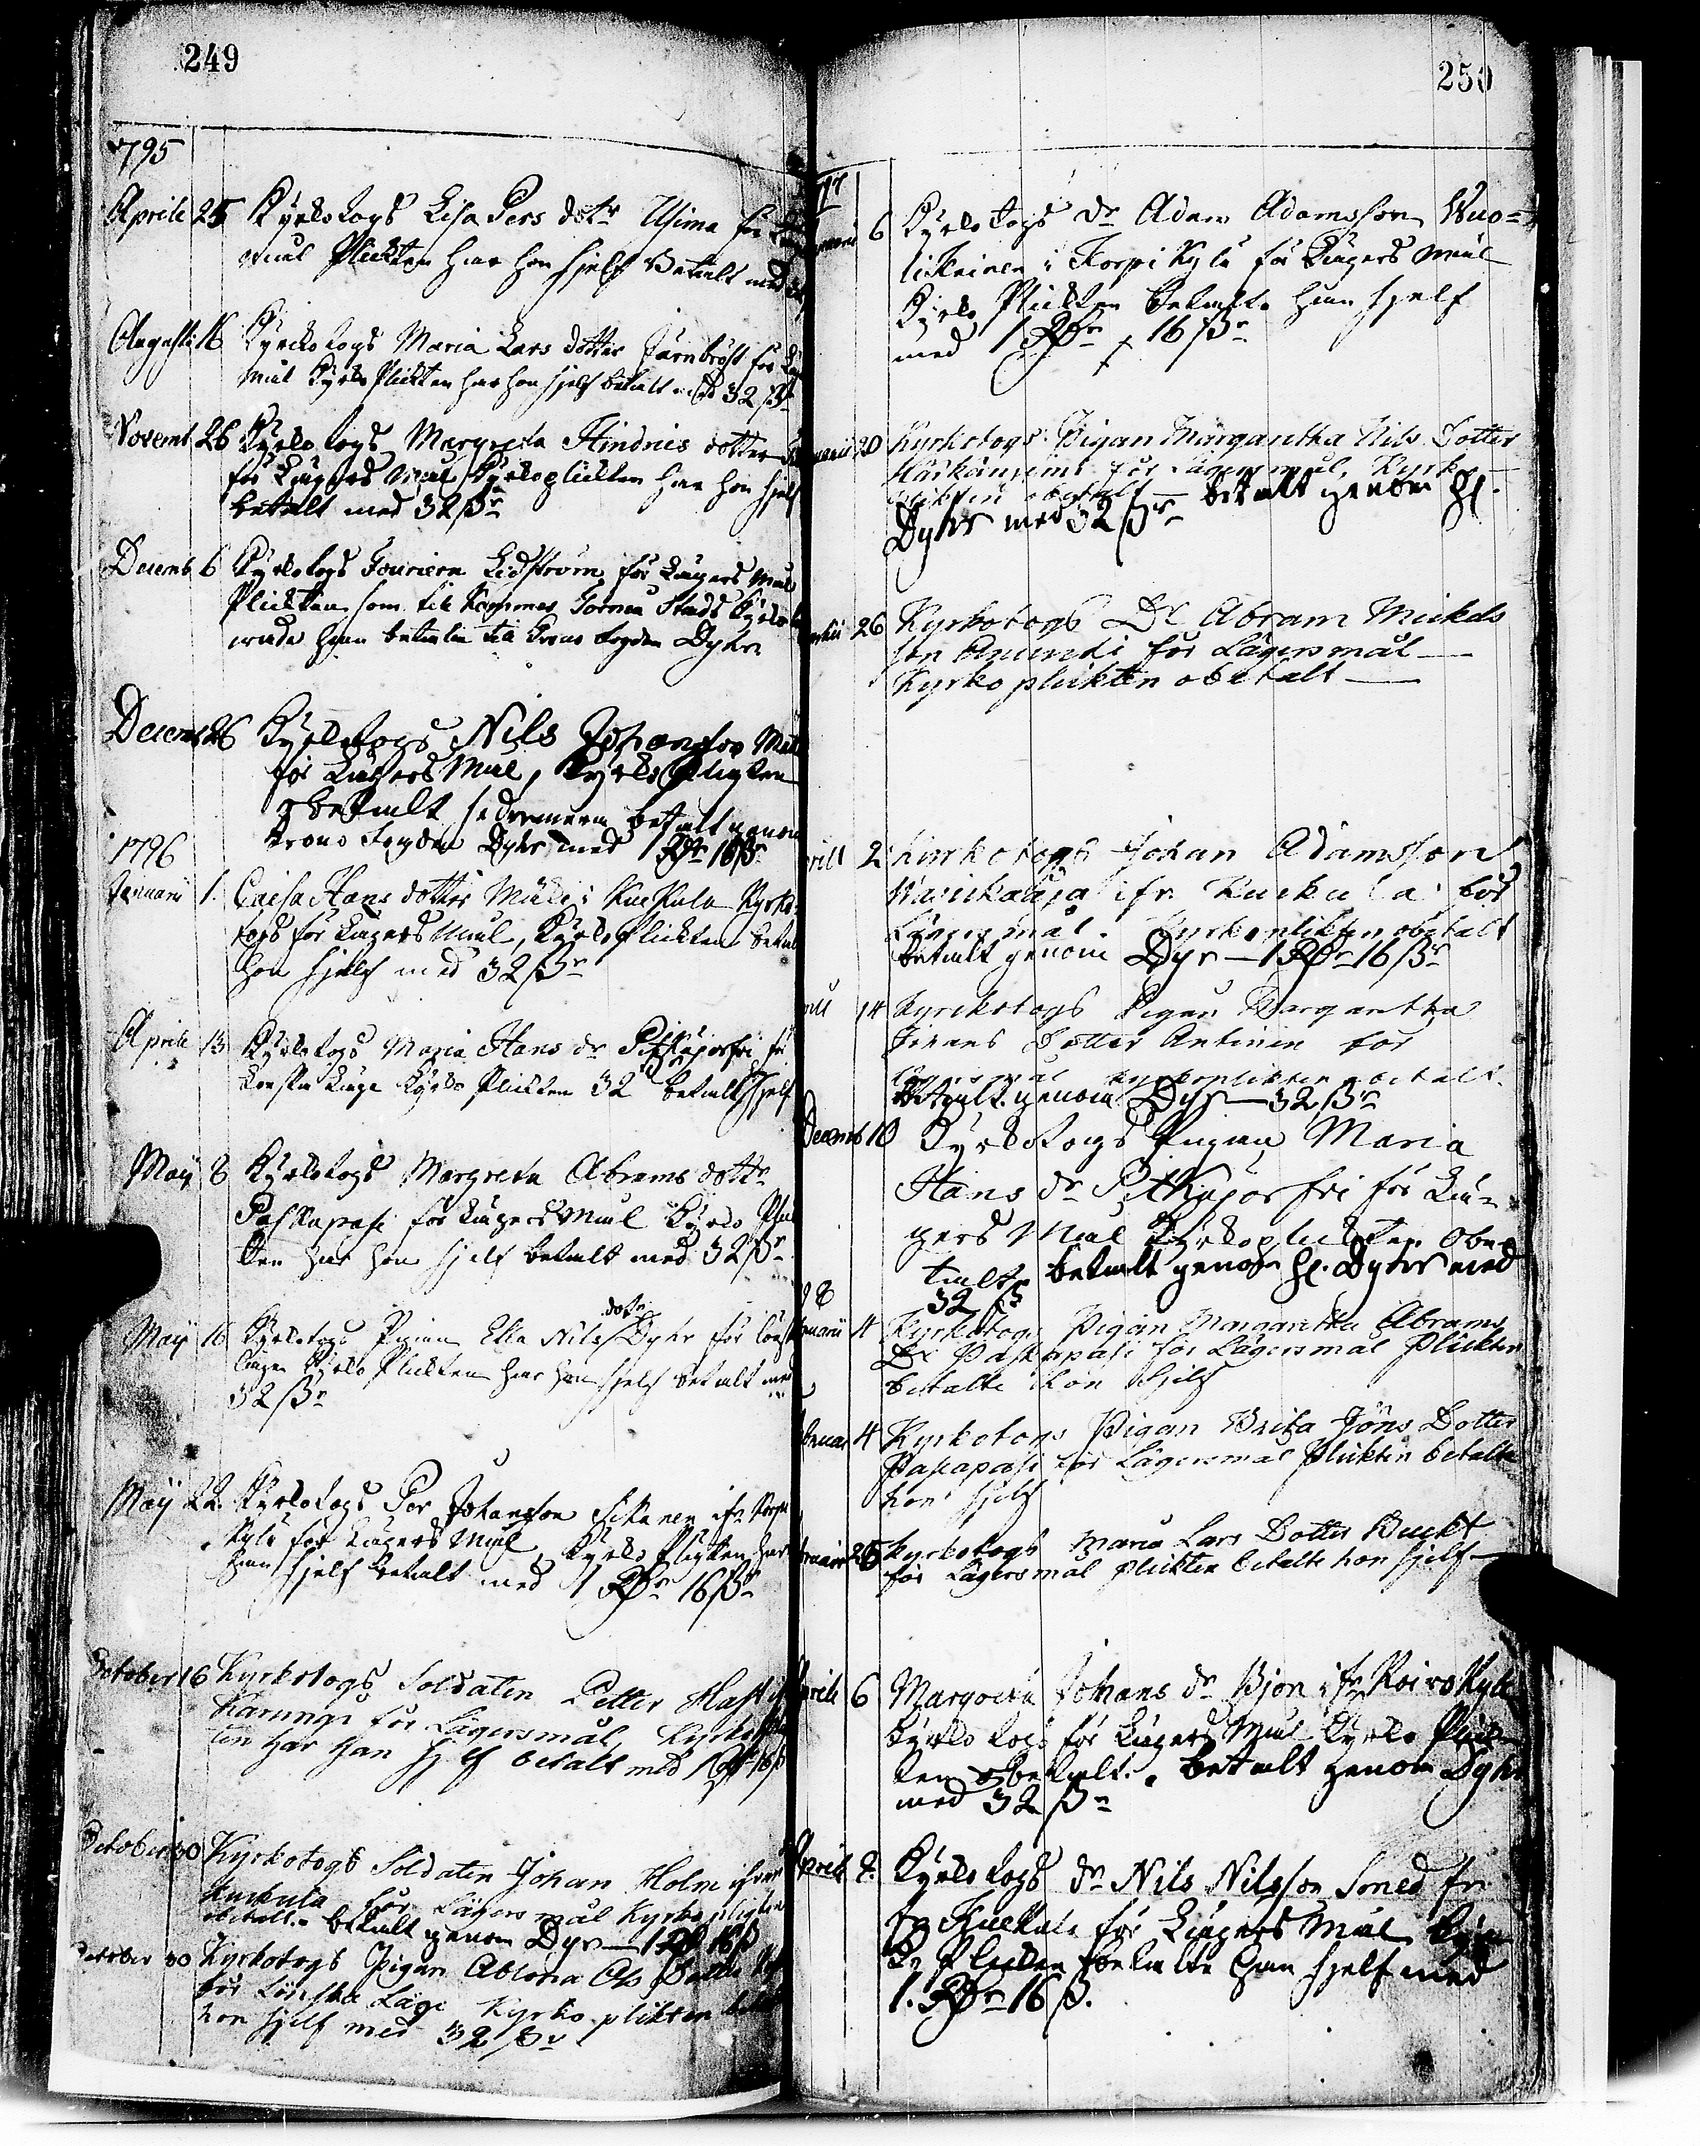 249
1795
Aprill 25 Kyrkotogs Lisa Pers dotr Usima för
mål Plickten har hon sjelf Betalt med
Augusti 16 Kyrckotogs Maria Lars dotter Jernbröst för
mål Kyrko Plickten har hon sjelf betalt med 32 ßr
Novemb 26 Kyrkotogs Margreta Hindrics dotter
för Lägers mål, Kyrkoplickten har hon sjelf
betalt med 32 ßr
Decemb 6 Kyrkotogs Fouriern Lidström för Lägers mål
Plickten som til kommer Torneå Stads Kyrko
han betala til Crono fogden Dyhr
Decemb 26 Kyrkotogs Nils Johansson
för Lägers Mål, Kyrko Pligten
obetalt sedermera betalt genom
Krono Fogden Dyhr med 1 Rdr 16 ßr
1796
Januari 1. Caisa Hans dotter Muli i Kuckula Kyrko-
togs för Lägers mål, Kyrko Plickten
hon sjelf med 32 ßr
Aprill 13 Kyrkotogs Maria Hans dr Pitkäjorfri för
Lönska Läge Kyrko Plickten 32 betalt sjelf
Maij 8 Kyrkotogs Margreta Abrams dottr
Paskapasi för Lägers mål Kyrko
ten har hon sjelf betalt med 32 ßr
dotr
Maij 16 Kyrkotogs Pigan Ella Nils Dyhr för Lönska
Läge Kyrko Plickten har hon sjelf betalt med
32 ßr
Maij 22. Kyrkotogs Per Johansson ifr
kylä för Lägers Mål Kyrko Pligten har
han sjelf betalt med 1 Rdr 16 ßr
October 16 Kyrkotogs Soldaten Petter Hast
Karungi för Lägersmål, Kyrko
ten har han sjelf betalt med 1 Rdr 16 ß
October 30 Kyrkotogs Soldaten Johan Holm ifrån
Kuckula för Lägersmål Kyrko pligten
obetalt. betalt genom Dyr — 1 Rdr 16 ß
October 30 Kyrkotogs Pigan Ablona Ols Dotter
för Lönska Läge Kyrko plikten
hon sjelf med 32 ßr
250
6 Kyrkotogs dr Adam Adamsson Wuo=
likainen i Korpi Kylä för Lägers mål
Kyrko Plickten betalte han sjelf
med 1 Rdr 16 ßr
20 Kyrkotogs Pigan Margaretha Nils Dotter
för Lägersmål, Kyrko
plikten obetalt — betalt genom H.
Dyhr med 32 ßr
26 Kyrkotogs Dr Abram Mickels
son för Lägersmål —
Kyrko plickten obetalt —
2 Kyrkotogs Johan Adamsson
ifr. Kuckula för
Lägersmål. Kyrkoplikten obetalt
betalt genom Dyr — 1 Rdr 16 ßr
14 Kyrckotogs Pigan Margaretha
Johans Dotter Antinen för
Lägersmål kyrkoplikten obetalt.
Betalt genom Dyr — 32 ßr
Decemb 10 Kyrkotogs Pigan Maria
Hans dr Pitkäjorfri för Lä-
gers Mål Kyrkoplickten obe-
talt betalt genom H. Dyhr med
32 ß
98
4 Kyrkotogs Pigan Margaretha Abrams
Dr Paskapasi för Lägersmål Plickten
betalte hon sjelf
4 Kyrkotogs Pigan Brita Jöns Dotter
Paskapasi för Lägersmål Plickten betalte
hon sjelf
25 Kyrkotogs Maria Lars Dotter Buckt
för Lägersmål plickten betalte hon sjelf —
Aprill 6 Margreta Johans dr Björn ifr Koivokylä
Kyrkotogs för Lägers Mål Kyrko Plick-
ten obetalt. betalt genom Dyhr
med 32 ßr
Aprill 8. Kyrkotogs dr Nils Nilsson Smed fr
Kuckula för Lägers Mål Kyr
ko Plickten betalte han sjelf med
1. Rdr 16 ß.